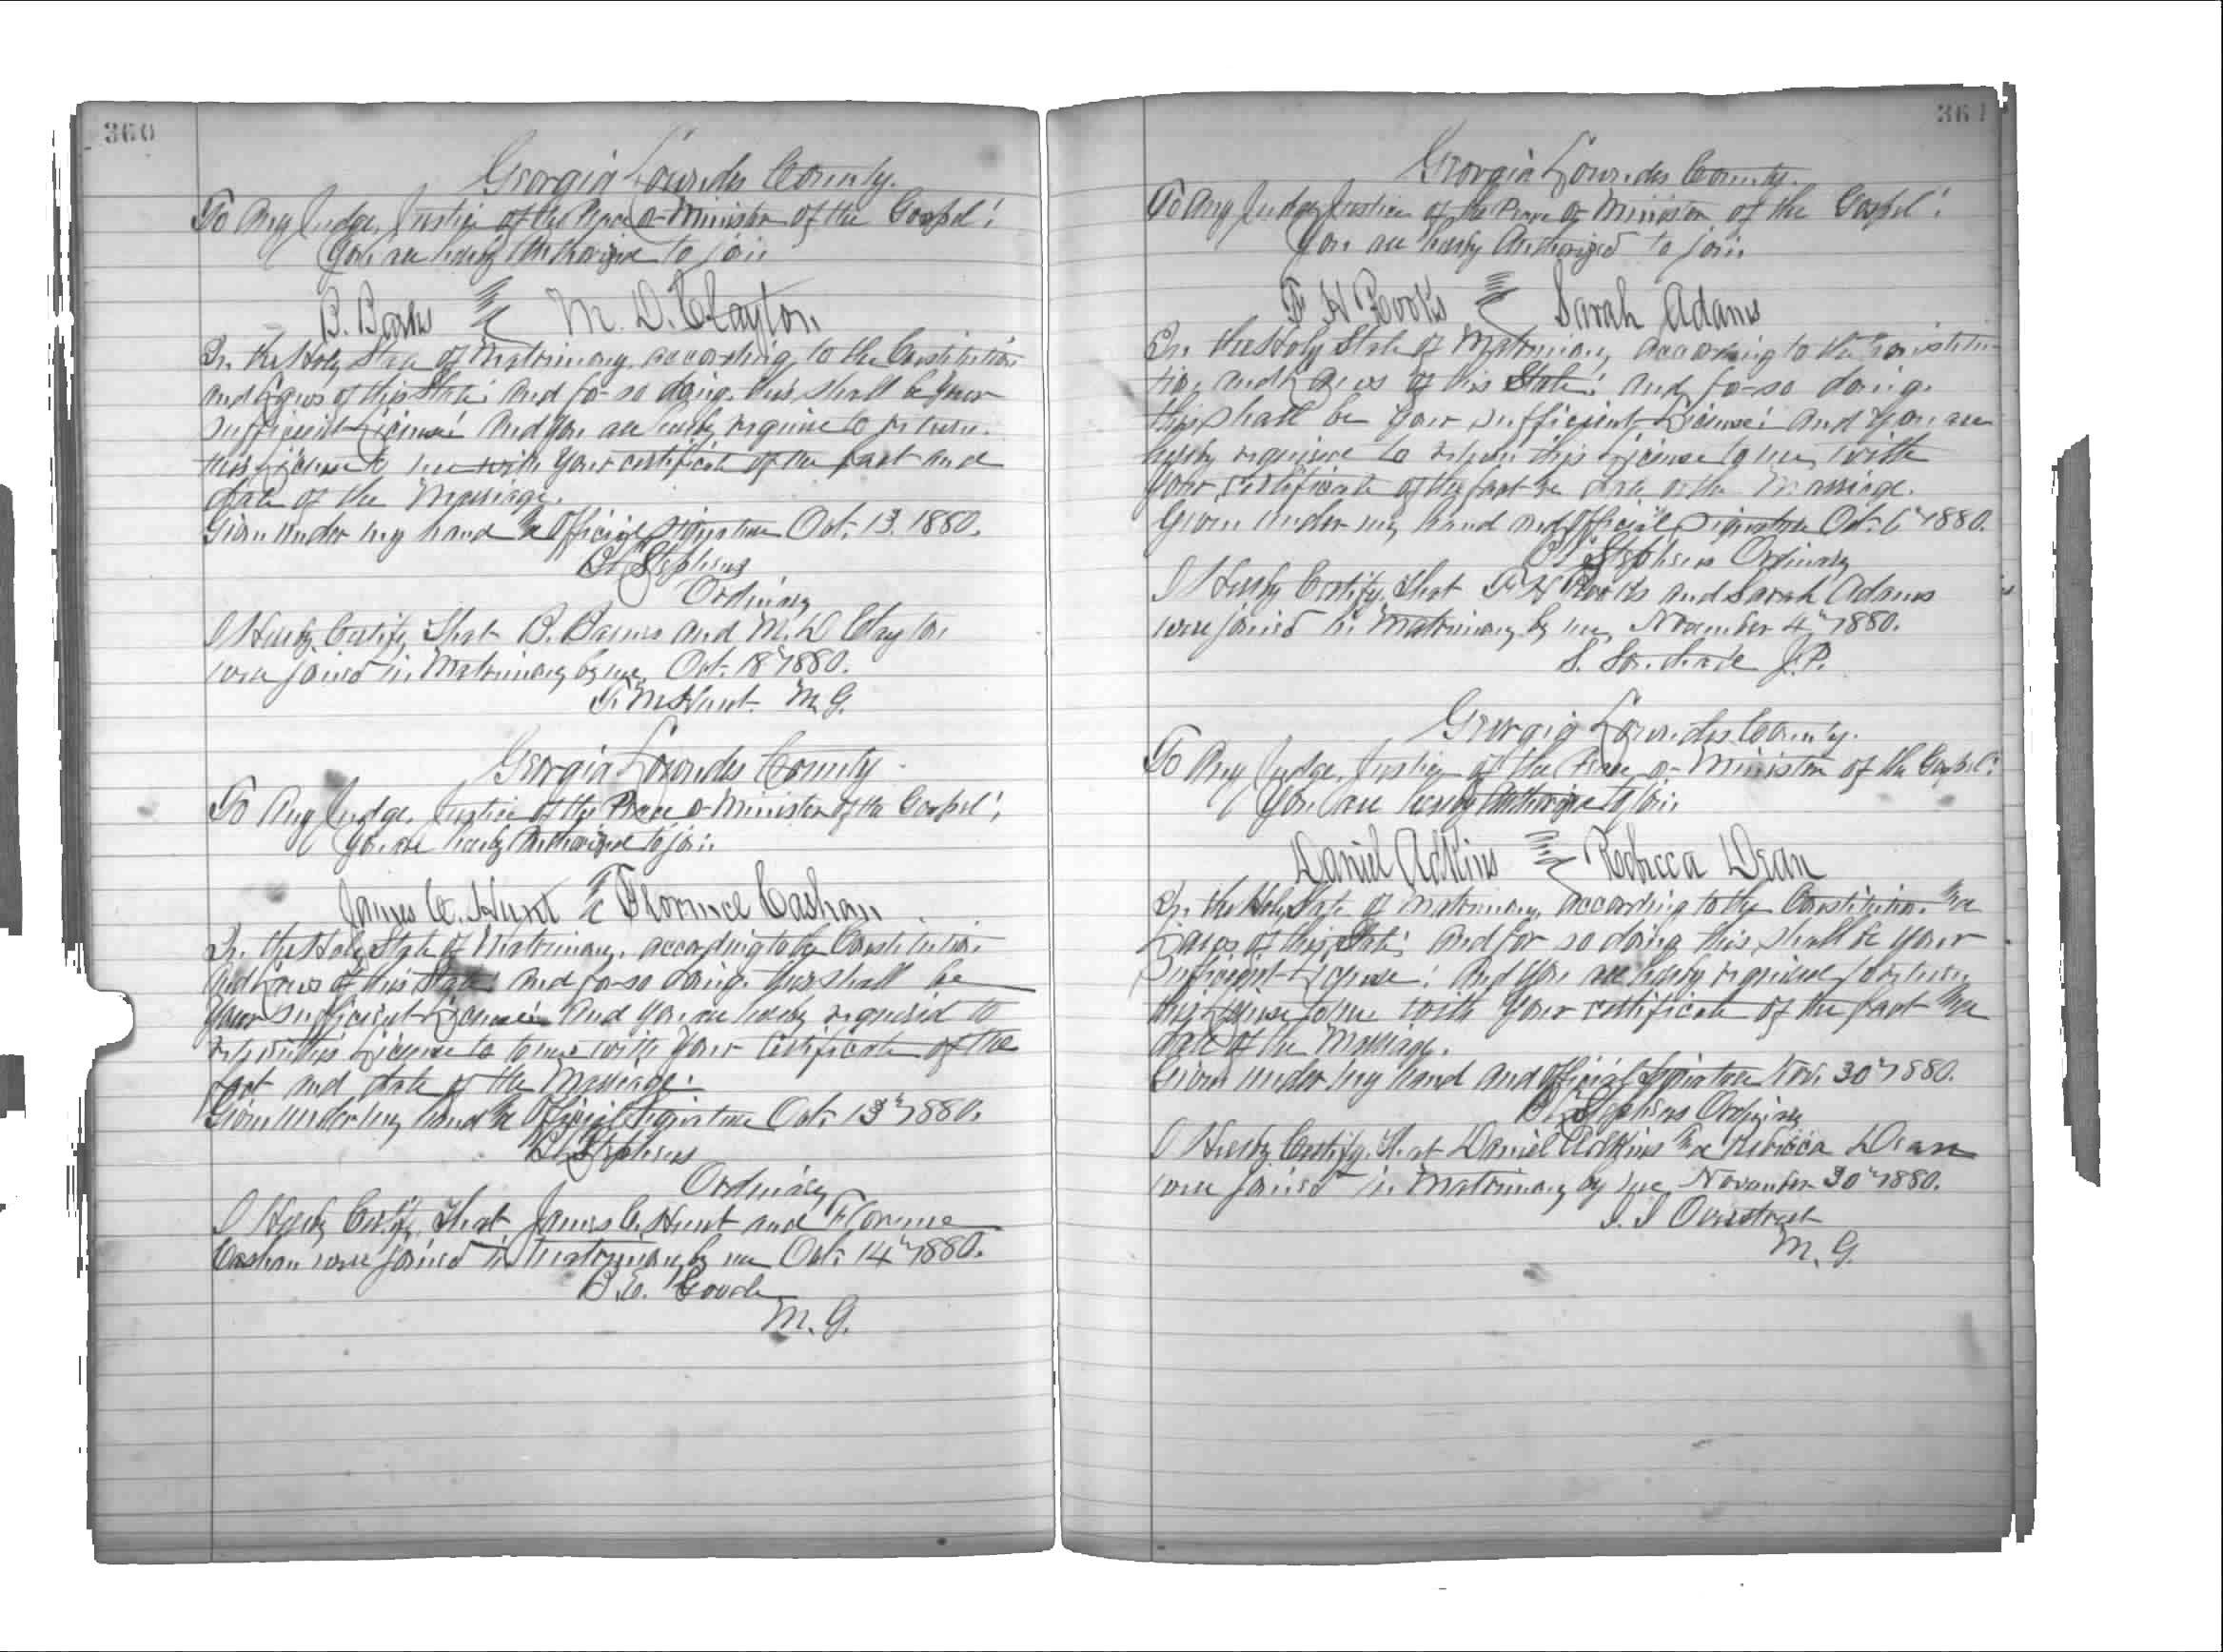 360
Georgia Lowndes County.
To Any Judge, Justice of the Peace or Minister of the Gospel!
You are hereby Authorized to join
B. Barns & M. D. Clayton
In the Holy State of Matrimony according to the Constitution
and Laws of this State: And for so doing this shall be your
sufficient License! And you are hereby require to return
this License to me with your certificate of the fact and
date of the Marriage.
Given under my hand & Official signature Oct. 13. 1880.
Stephens
Ordinary
I Hereby Certify That B. Barns and M. D Clayton
were joined in Matrimony by me, Oct. 18" 1880.
Hunt M. G.
Georgia Lowndes County
To Any Judge, Justice of the Peace or Minister of the Gospel!
You are hereby Authorized to join
James C. Hunt & Florence Cashan
In the Holy State of Matrimony, according to the Constitution
and Laws of this State: And for so doing this shall be
your sufficient License: And you are hereby required to
return this License to to me with your Certificate of the
fact and date of the Marriage.
Given under my hand & Official Signature Oct. 13" 1880.
Stephens
Ordinary
I Hereby Certify That James C. Hunt and Florence
Cashan were joined in Matrimony by me Oct. 14" 1880.
B. C. Goode
M. G.
361
Georgia Lowndes County.
To Any Judge, Justice of the Peace or Minister of the Gospel!
You are hereby Authorized to join
F H Rooks & Sarah Adams
In the Holy State of Matrimony, according to the Constitu-
tion and Laws of this State! And for so doing
this shall be your sufficient License! And you are
hereby require to return this License to me, with
your certificate of the fact & date of the Marriage.
Given under my hand and official signature Oct. 6" 1880.
Stephens Ordinary
I Hereby Certify, That F H Rooks and Sarah Adams
were joined in Matrimony by me, November 4" 1880.
J. P.
Georgia Lowndes County.
To Any Judge, Justice of the Peace or Minister of the Gospel!
You are hereby Authorize to join
Daniel Adkins and Rebecca Dean
In the Holy State of Matrimony, according to the Constitution &
Laws of this State; And for so doing this shall be your
Sufficient License! And you are hereby required to return
this License to me with your certificate of the fact &
date of the Marriage.
Given under my hand and Official Signature Nov. 30" 1880.
Stephens Ordinary
I Hereby Certify, That Daniel Adkins & Rebecca Dean
were joined in Matrimony by me, November 30" 1880.
Overstreet
M. G.